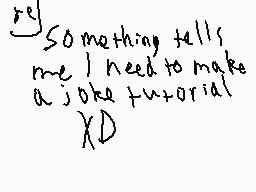 re
something tells
me I need to make
a joke tutorial
XD